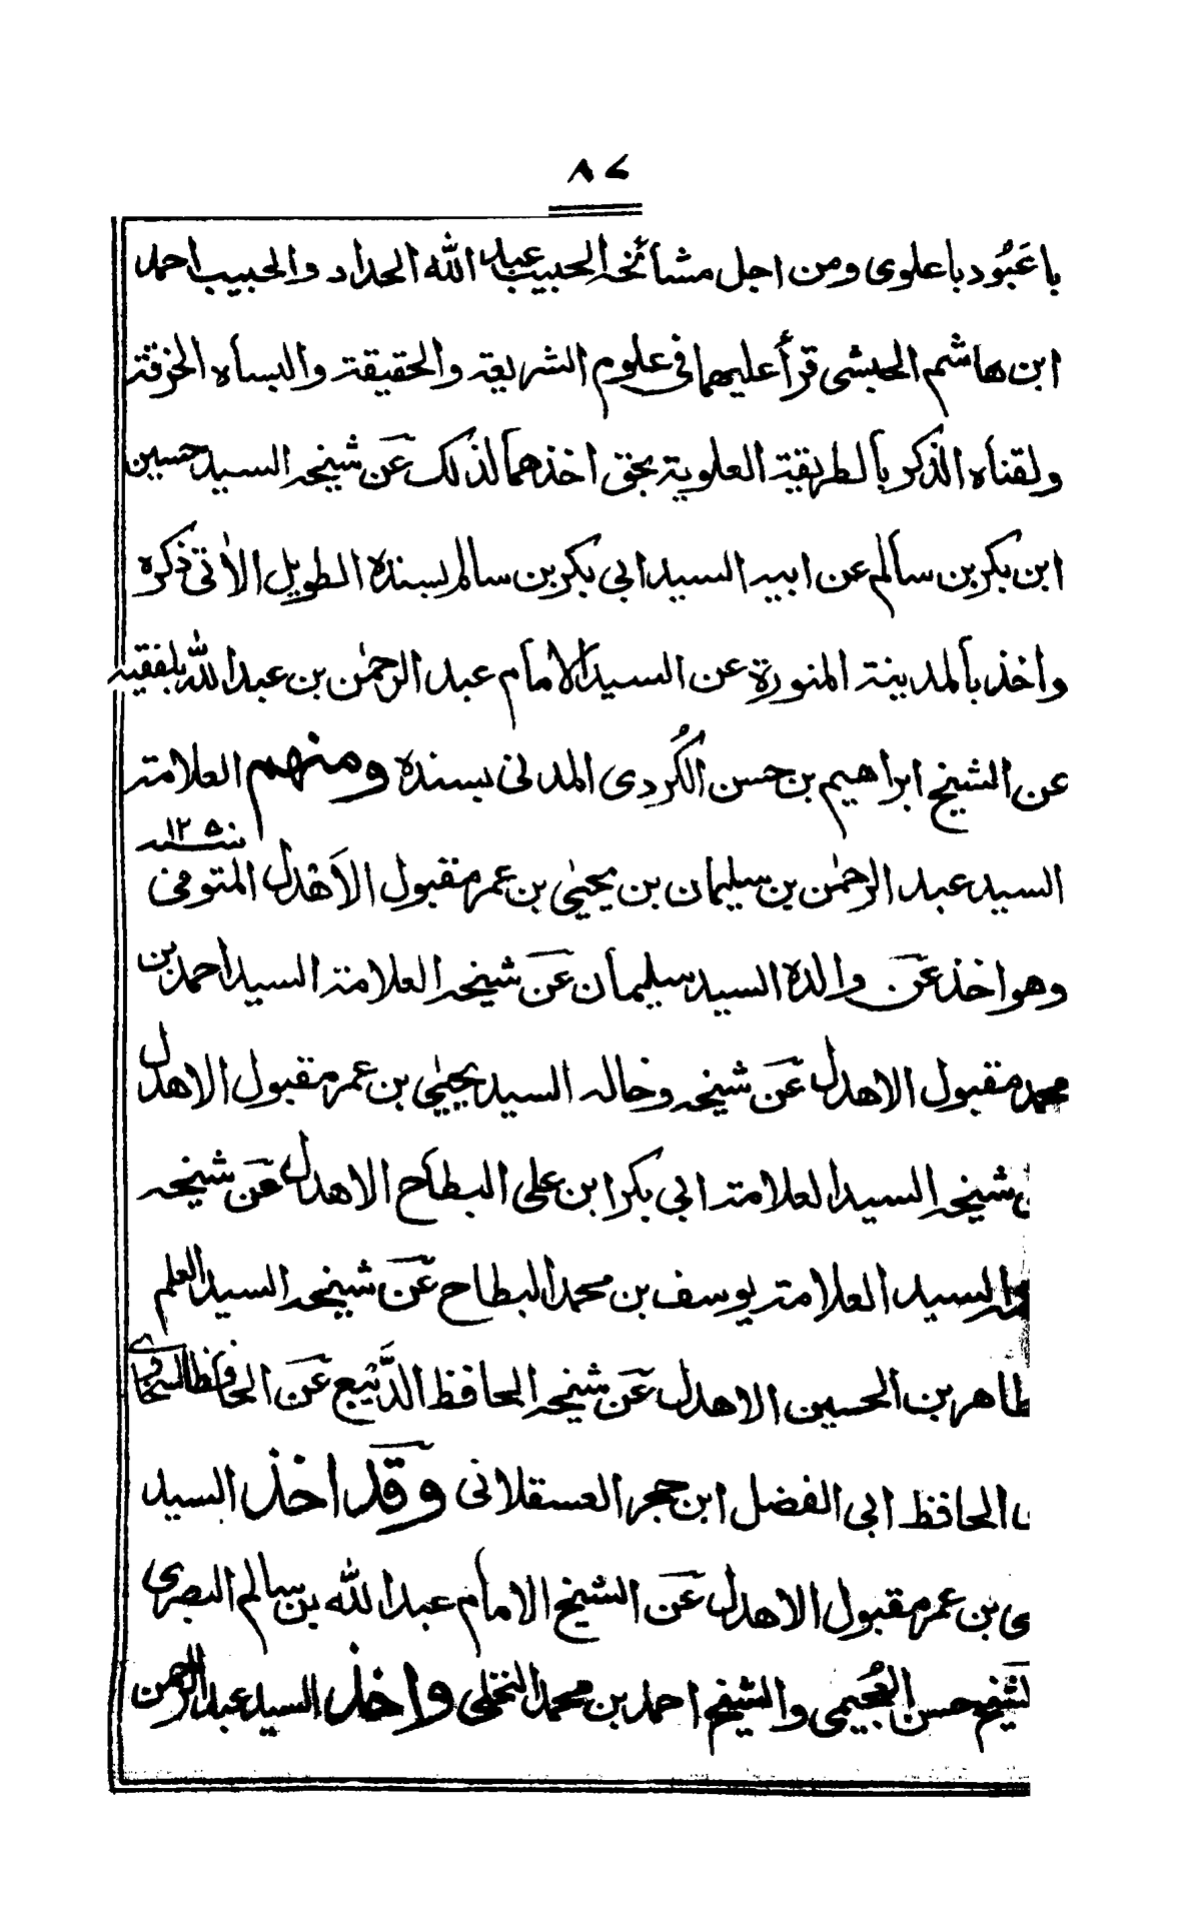 ٨٧
باعَبُود باعلوى ومن اجل مشائخه الحبيب عبد الله الحداد والحبيب احمد
ابن هاشم الحبشى قرأ عليهما فى علوم الشريعة والحقيقة والبساه الخرقة
ولقناه الذكر بالطريقة العلوية بحق اخذهما لذلك عن شيخه السيد حسين
ابن بكر بن سالم عن ابيه السيد ابى بكر بن سالم بسنده الطويل الاٰتى ذكره
واخذ بالمدينة المنورة عن السيد الامام عبد الرحمٰن بن عبد الله بلفقيه
عن الشيخ ابراهيم بن حسن الكُردى المدنى بسنده ومنهم العلامة
السيد عبد الرحمٰن بن سليمان بن يحيىٰ بن عمر مقبول الاَهْدل المتوفى سنة ١٢٥٠
وهو اخذ عن والده السيد سليمان عن شيخه العلامة السيد احمد بن
محمد مقبول الاهدل عن شيخه وخاله السيد يحيىٰ بن عمر مقبول الاهدل
ن شيخه السيد العلامة ابى بكر ابن على البطاح الاهدل عن شيخه
السيد العلامة يوسف بن محمد البطاح عن شيخه السيد العلم
طاهر بن الحسين الاهدل عن شيخه الحافظ الدَّيْبع عن الحافظ السخاوى
ن الحافظ ابى الفضل ابن حجر العسقلانى وقد اخذ السيد
ى بن عمر مقبول الاهدل عن الشيخ الامام عبد الله بن سالم البصرى
لشيخ حسن العُجيمى والشيخ احمد بن محمد النخلى واخذ السيد عبد الرحمن